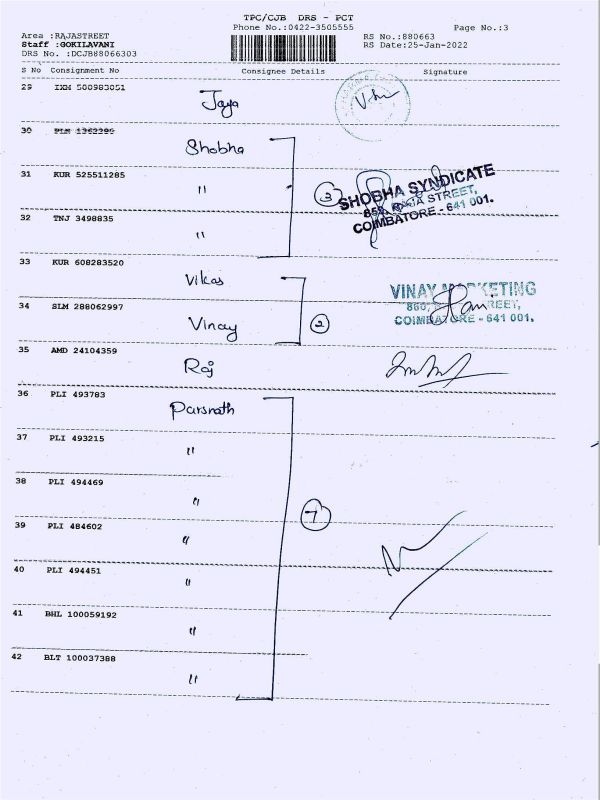 TPC/CJB DRS - PCT
Phone No.:0422-3505555 Page No.:3
Area :RAJASTREET RS No.:880663
Staff :GOKILAVANI RS Date:25-Jan-2022
DRS No. :DCJB88066303
S No Consignment No Consignee Details Signature
29 IXM 500983051
Jaya
30 PLM 1362390
Shobha
31 KUR 525511285
" 3 SHOBHA SYNDICATE
RAJA STREET,
32 TNJ 3498835 COIMBATORE - 641 001.
"
33 KUR 608283520
Vikas
VINAY MARKETING
34 SLM 288062997 860, REET,
Vinay 2 COIMBATORE - 641 001.
35 AMD 24104359
Raj
36 PLI 493783
Parsnath
37 PLI 493215
"
38 PLI 494469
"
7
39 PLI 484602
"
40 PLI 494451
"
41 BHL 100059192
"
42 BLT 100037388
"